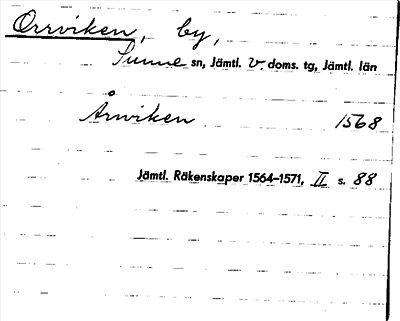 Orrviken, by,
Sunne sn, Jämtl. V. doms. tg, Jämtl. län
Årwiken 1568
Jämtl. Räkenskaper 1564–1571, II s. 88